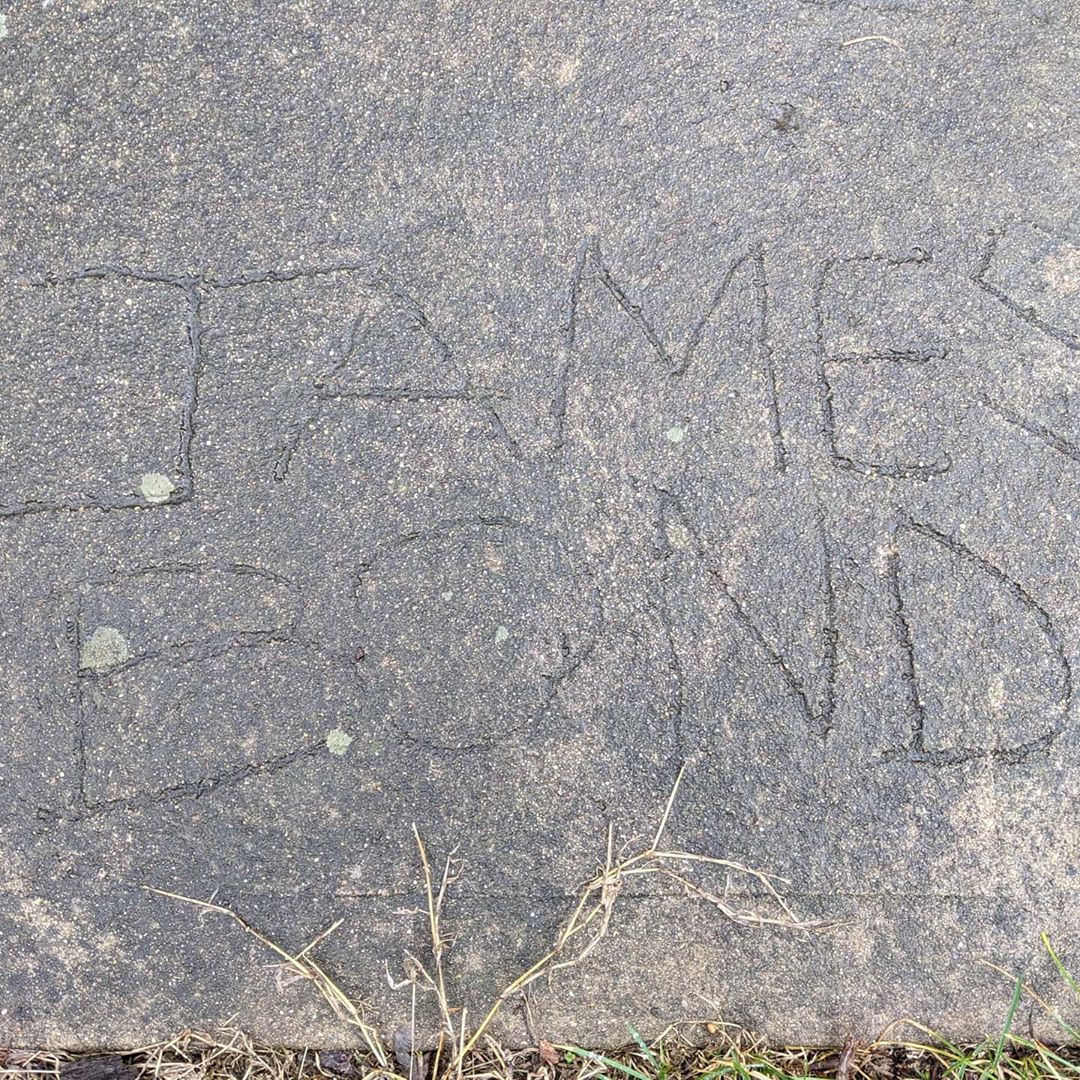 JAMES
BOND